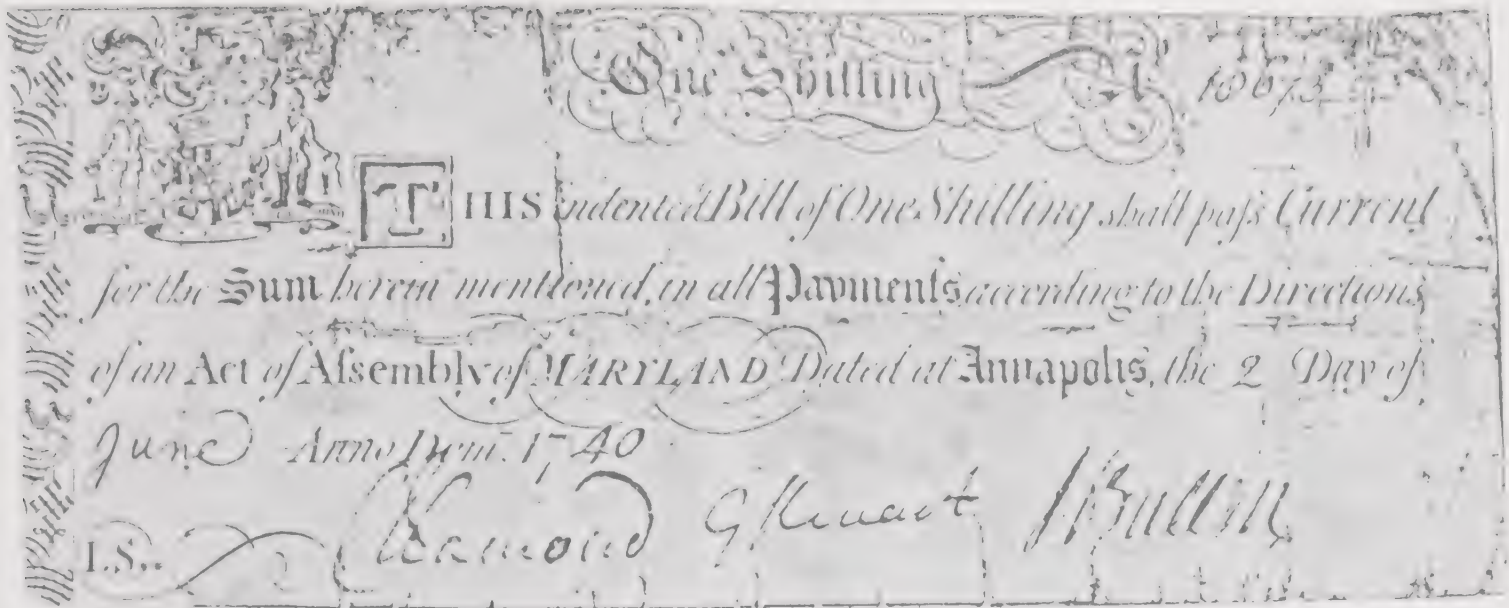 One Shilling N 10073
THIS indented Bill of One Shilling shall pass Current
for the Sum herein mentioned, in all Payments according to the Directions
of an Act of Assembly of MARYLAND Dated at Annapolis, the 2 Day of
June Anno Dom. 1740
G Steuart J Bullen
I.S..